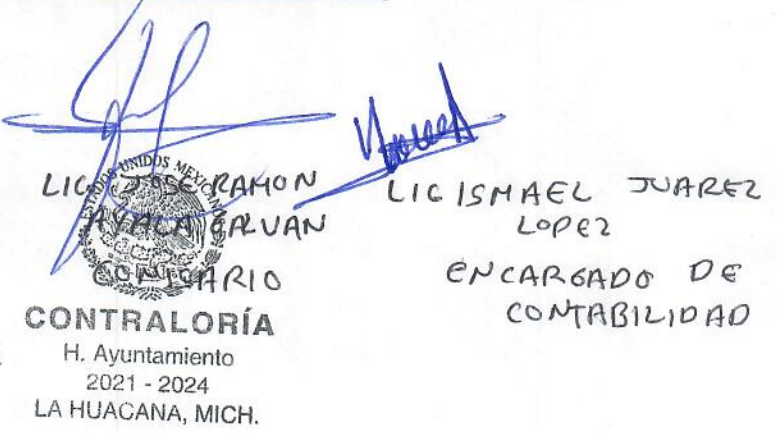 LIC. JOSE RAMON
AYALA GALVAN
COMISARIO
ESTADOS UNIDOS MEXICANOS
CONTRALORÍA
H. Ayuntamiento
2021 - 2024
LA HUACANA, MICH.
LIC ISMAEL JUAREZ
LOPEZ
ENCARGADO DE
CONTABILIDAD